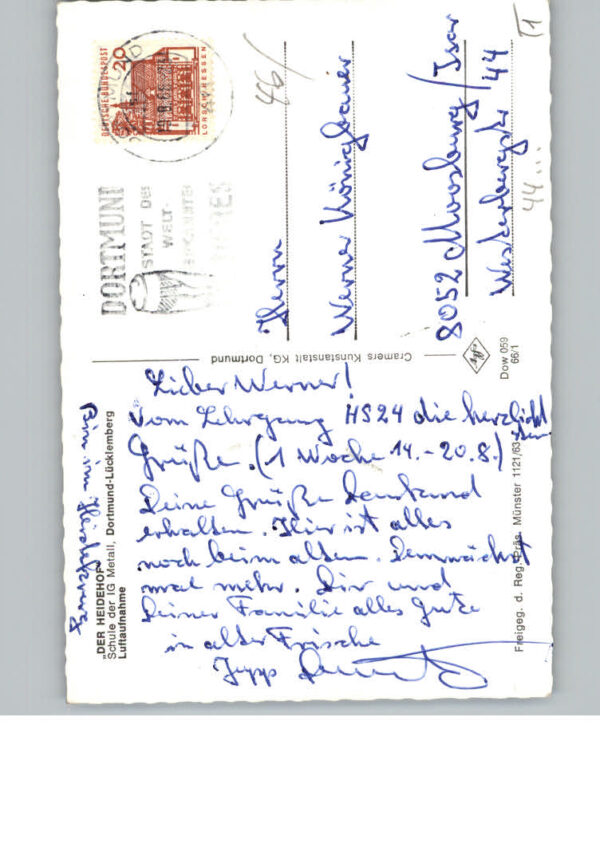 DEUTSCHE BUNDESPOST
20
LORSCH/HESSEN
DORTMUND
STADT DER
WELT-
BEKANNTEN
BIERE
46/
11
Herrn
Werner Königbauer
8052 Moosburg/Isar
Westerbergstr 44
44...
Cramers Kunstanstalt KG, Dortmund
Dow 059
66/1
Lieber Werner!
Vom Lehrgang HS24 die herzlichsten
Grüße. (1 Woche 14.-20.8.)
Deine Grüße dankend
erhalten. Hier ist alles
noch beim alten. Demnächst
mal mehr. Dir und
Deiner Familie alles Gute
in alter Frische
Jupp
Bin im
"DER HEIDEHOF"
Schule der IG Metall, Dortmund-Lücklemberg
Luftaufnahme
Freigeg. d. Reg. Präs. Münster 1121/63